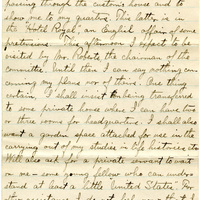 passing through the custom's house and to
show me to my quarters. This latter is in
the "Hotel Royal", an English affair of some
pretensions. This afternoon I expect to be
visited by Mr. Roberts the chairman of the
committee. Until then I can say nothing con-
cerning my plans nor of those. One thing
certain, I shall insist on being transferred
to some private house where I can have two
or three rooms for headquarters. I shall also
want a garden space attached for use in the
carrying out of my studies in life histories etc.
Will also ask for a private servant to wait
on me - some young fellow who can under-
stand at least a little United States. For